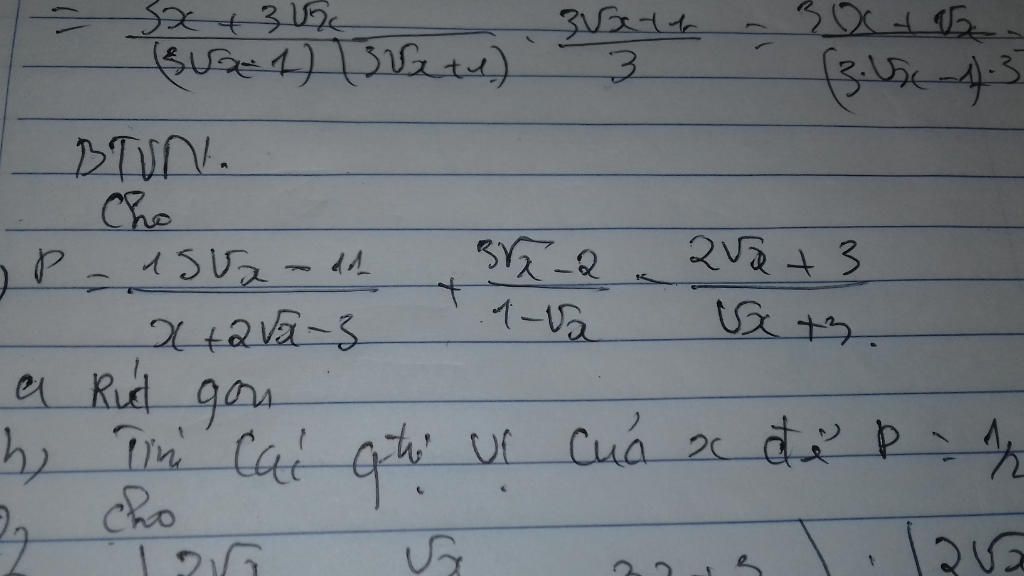 = (3x + 3√x)/((3√x - 1)(3√x + 1)) · (3√x + 1)/3 = /((3.√x - 1).3
BTVN.
Cho
) P = (15√x - 11)/(x + 2√x - 3) + (3√x - 2)/(1 - √x) - (2√x + 3)/(√x + 3).
a Rút gọn
b) Tìm các giá trị của x để P = 1/2
2 Cho
2√x √x 2√x